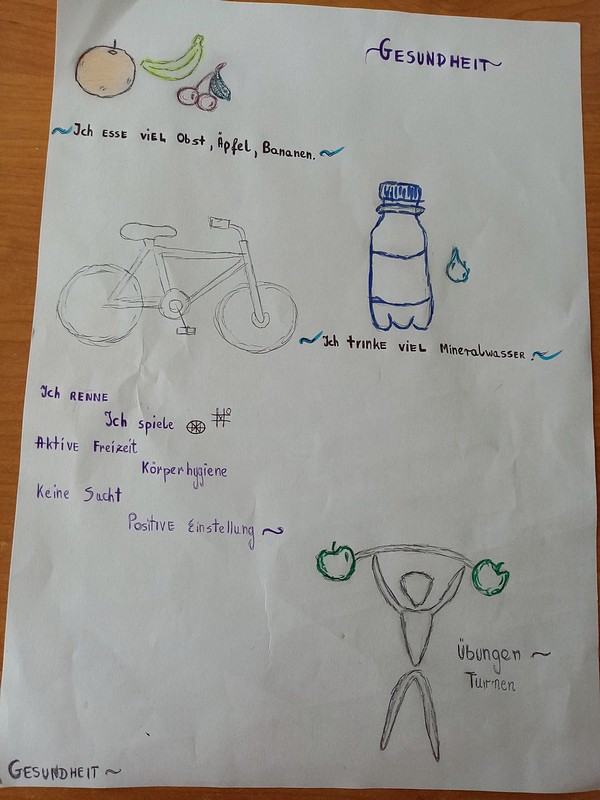 ~GESUNDHEIT~
~Ich ESSE VIEL Obst, Äpfel, Bananen.~
~Ich trinke VIEL Mineralwasser.~
Ich RENNE
Ich spiele
Aktive Freizeit
Körperhygiene
Keine Sucht
Positive Einstellung~
Übungen ~
Turnen
GESUNDHEIT~